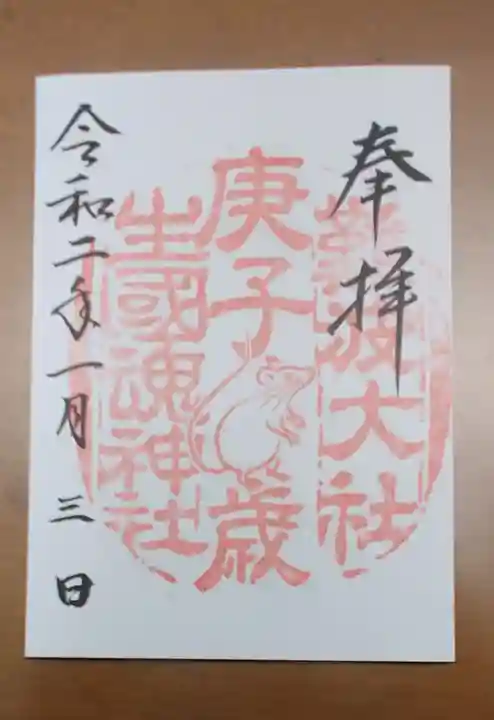 奉拝
難波大社
庚子歳
生國魂神社
令和二年一月三日